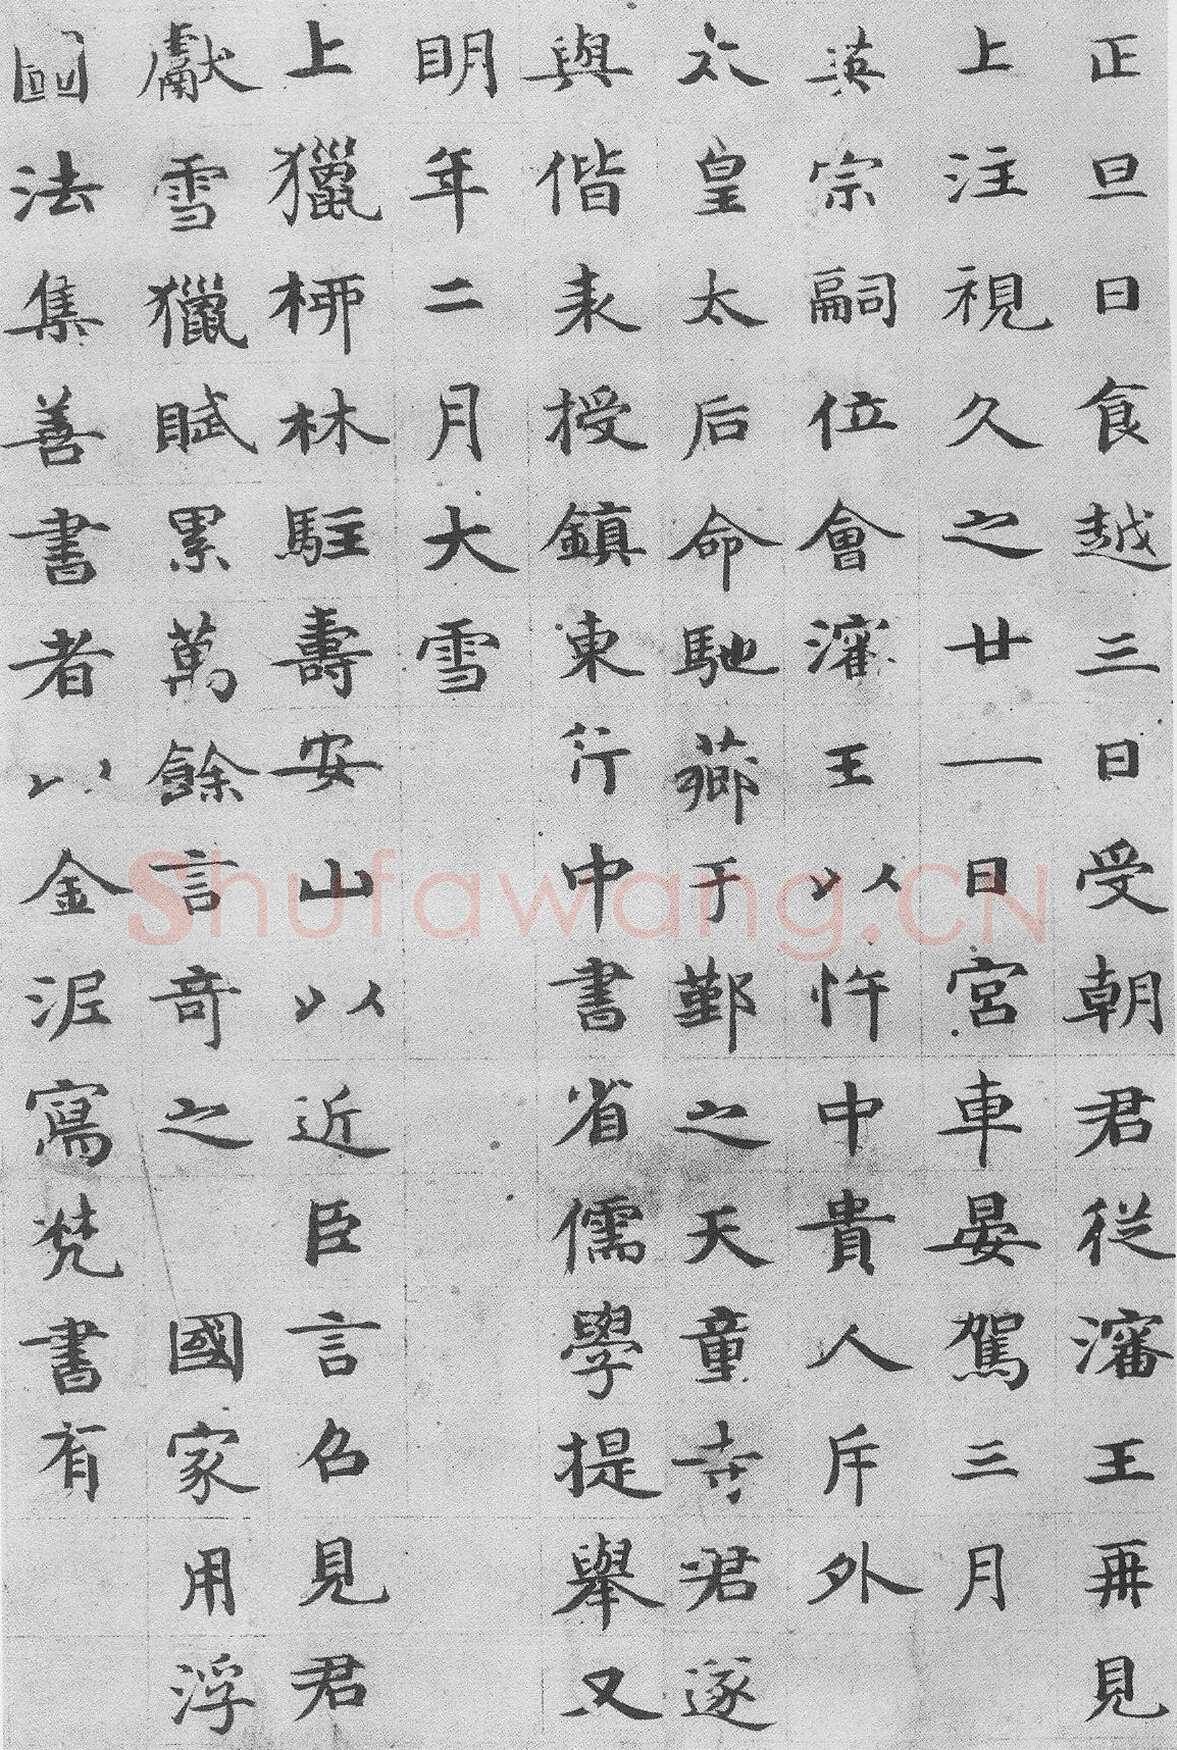 正旦日食越三日受朝君従瀋王再見
上注視久之廿一日宮車晏駕三月
英宗嗣位會瀋王以忤中貴人斥外
太皇太后命馳薌于鄞之天童寺君遂
與偕来授鎮東行中書省儒學提舉又
明年二月大雪
上獵栁林駐壽安山以近臣言召見君
獻雪獵賦累萬餘言奇之 國家用浮
國法集善書者以金泥寫梵書有
Shufawang.CN